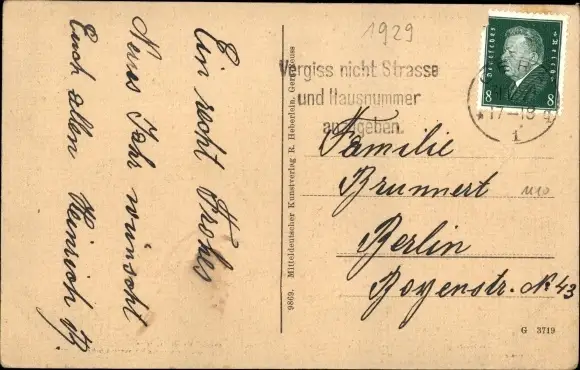 Ein recht Frohes
Neues Jahr wünscht
Euch allen Heinrich B.
9869. Mitteldeutscher Kunstverlag R. Heberlein, Gernrode
1929
Vergiss nicht Strasse
und Hausnummer
anzugeben.
Deutsches Reich
8 8
17-18
1
Familie
Brunnert
Berlin
Boyenstr. N 43
G 3719